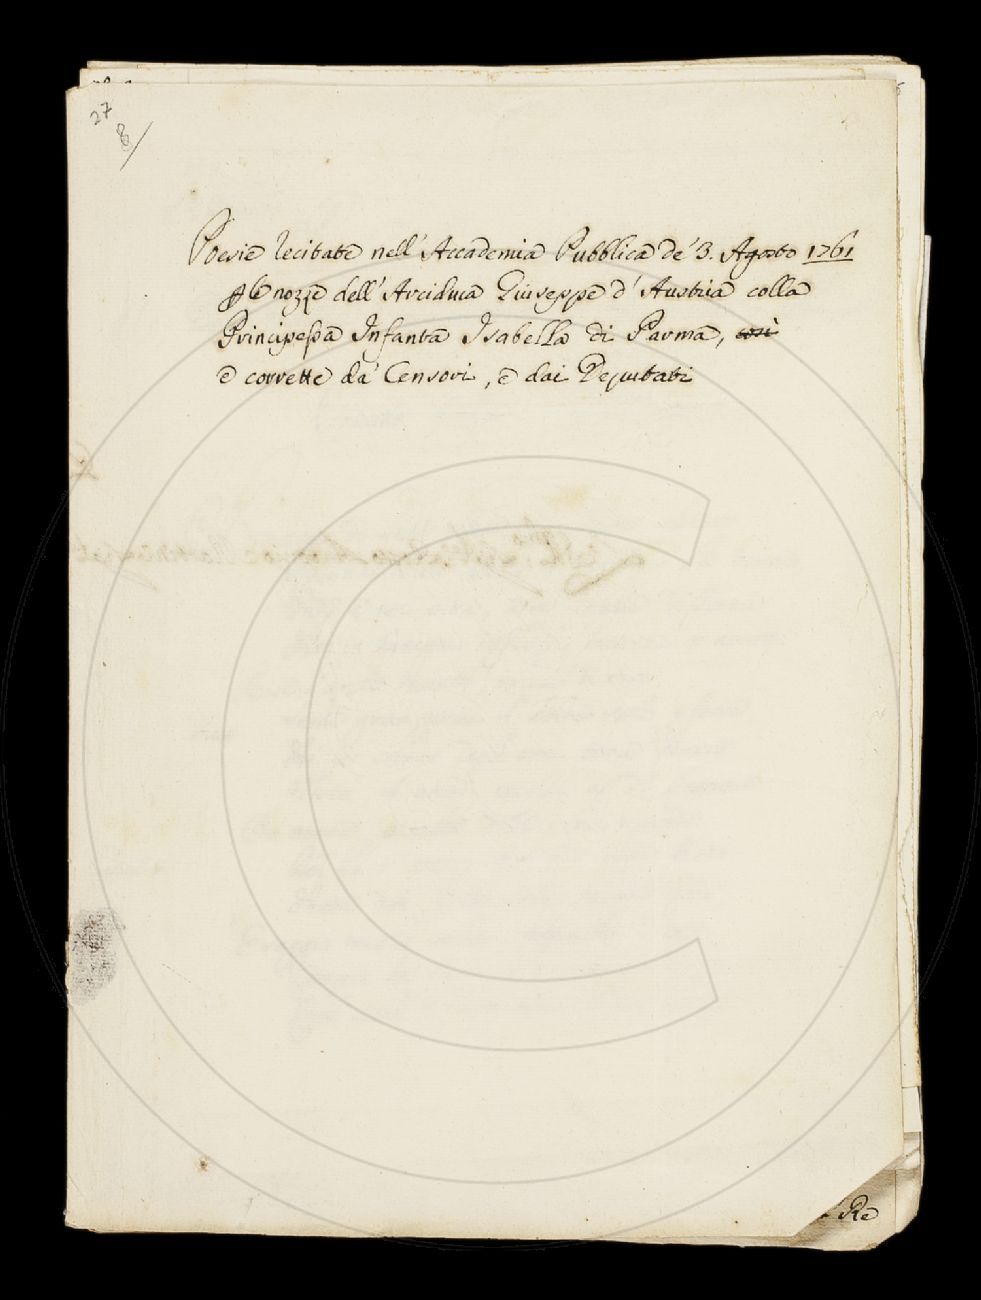 27
8/
Poesie recitate nell' Accademia Pubblica de' 3. Agosto 1761
p le nozze dell' Arciduca Giuseppe d' Austria colla
Principessa Infanta Isabella di Parma, così
e corrette da' Censori, e dai Deputati
Re